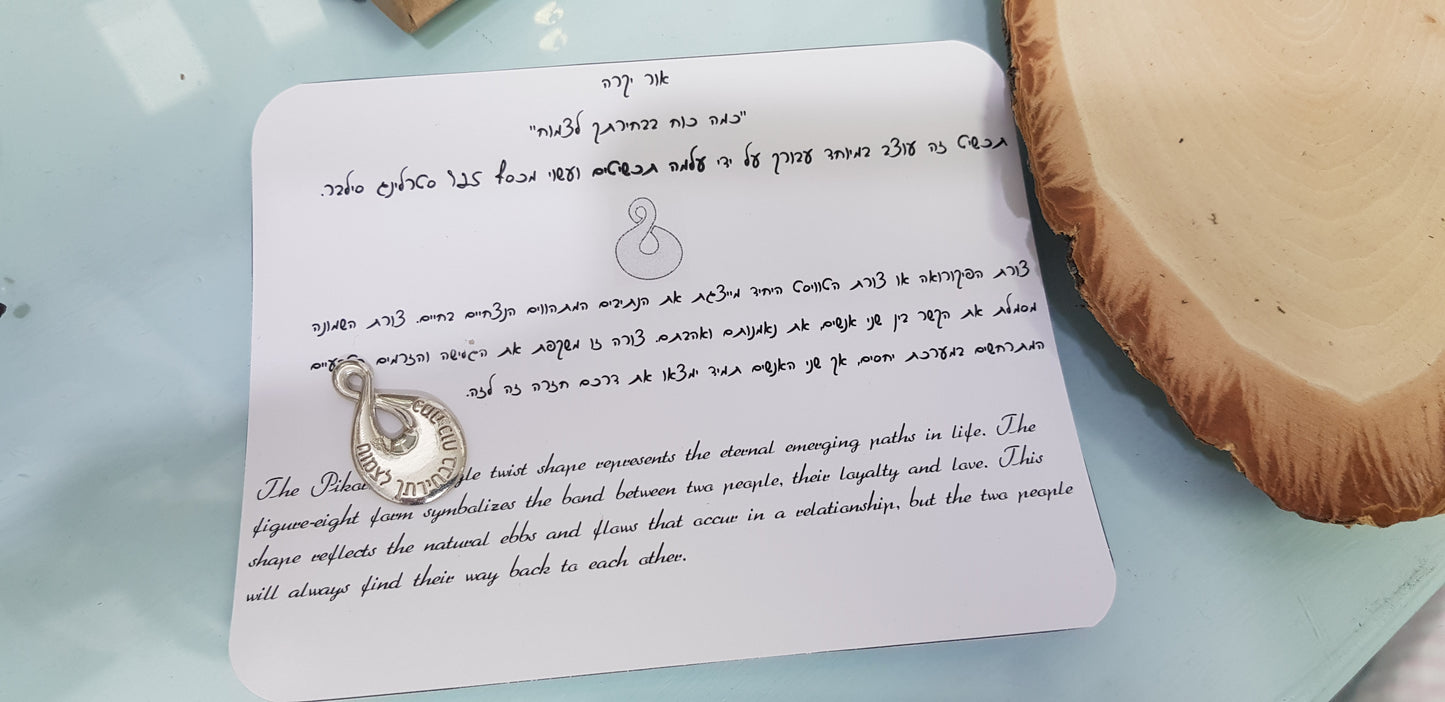 אור יקרה
"כמה כוח בבחירתך לצמוח"
תכשיט זה עוצב במיוחד עבורך על ידי עלמה תכשיטים ועשוי מכסף 925 סטרלינג סילבר.
צורת הפיקורואה או צורת הטוויסט היחיד מייצגת את הנתיבים המתהווים הנצחיים בחיים. צורת השמונה
מסמלת את הקשר בין שני אנשים, את נאמנותם ואהבתם. צורה זו משקפת את הגמישה והזרמים
המתרחשים במערכת יחסים, אך שני האנשים תמיד ימצאו את דרכם חזרה זה לזה.
The twist shape represents the eternal emerging paths in life. The
figure-eight form symbolizes the bond between two people, their loyalty and love. This
shape reflects the natural ebbs and flows that occur in a relationship, but the two people
will always find their way back to each other.
בבחירתך לצמוח